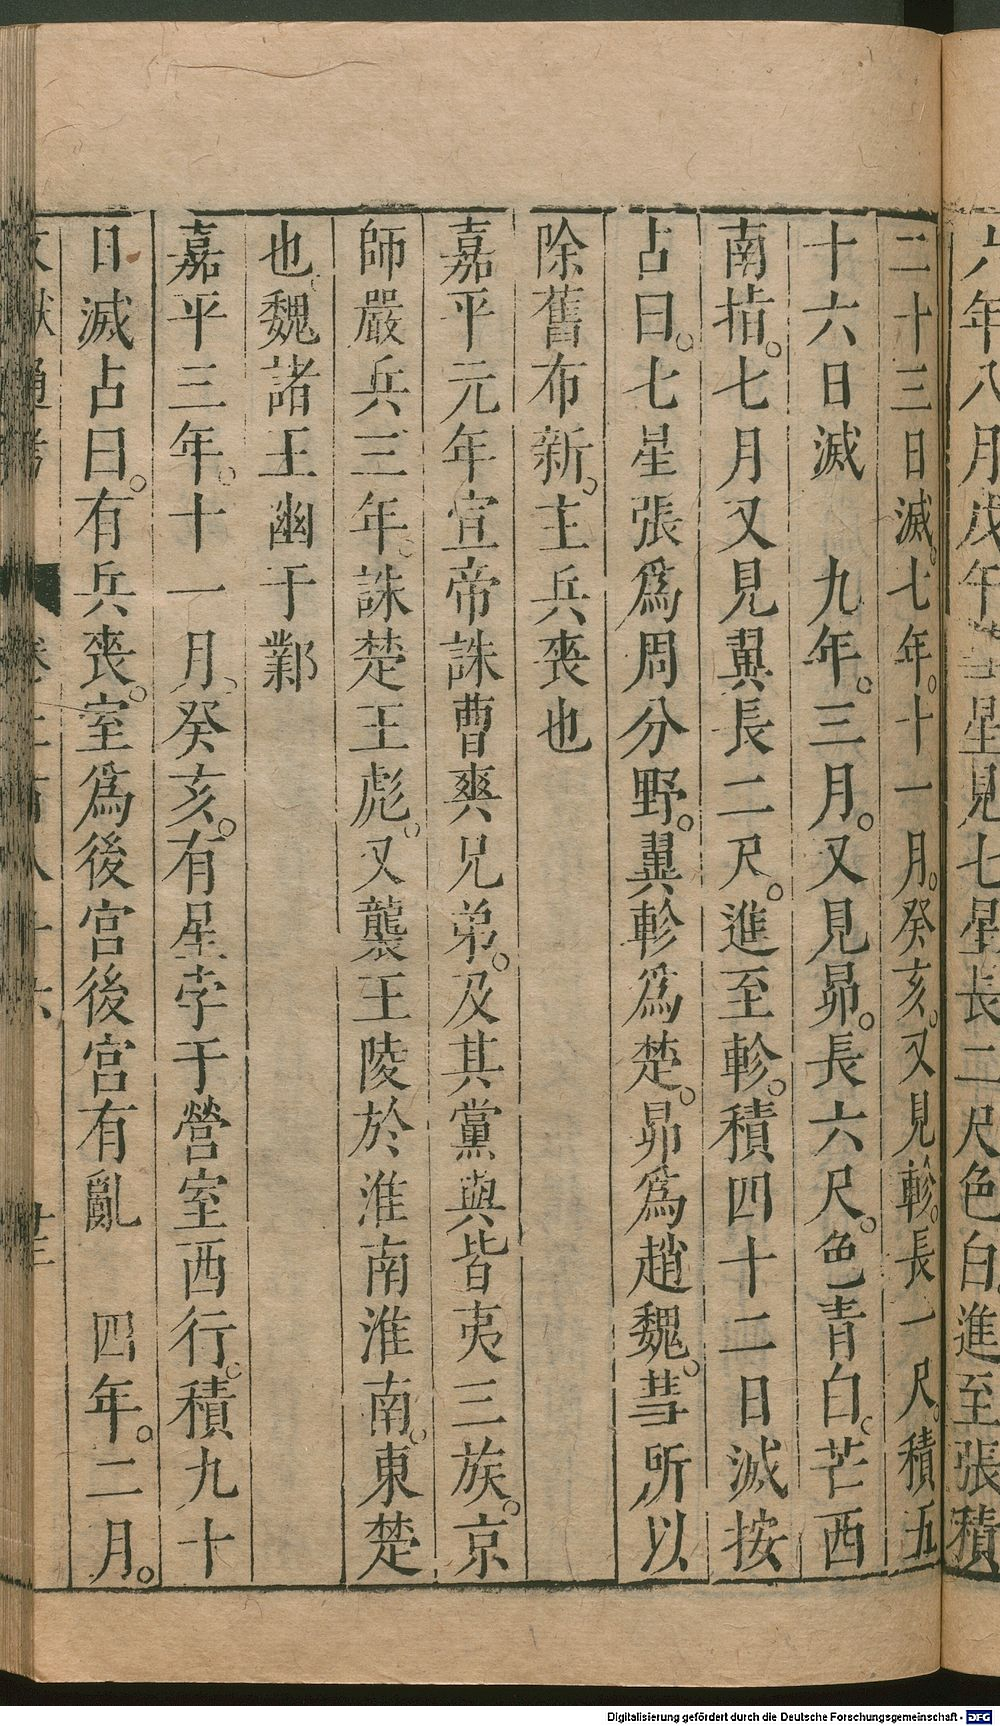 六年八月戊午彗星見七星長二尺色白進至張積
二十三日滅。七年。十一月。癸亥。又見軫。長一尺。積五
十六日滅　九年。三月。又見昴。長六尺。色青白。芒西
南指。七月又見翼長二尺。進至軫。積四十二日滅按
占曰。七星張爲周分野。翼軫爲楚。昴爲趙魏。彗所以
除舊布新。主兵喪也
嘉平元年宣帝誅曹爽兄弟。及其黨與皆夷三族。京
師嚴兵三年。誅楚王彪。又襲王陵於淮南淮南。東楚
也魏諸王幽于鄴
嘉平三年。十一月。癸亥。有星孛于營室西行。積九十
日滅占曰。有兵喪。室爲後宮後宮有亂　四年。二月。
文獻通考　卷二百八十六　廿三
Digitalisierung gefördert durch die Deutsche Forschungsgemeinschaft - DFG